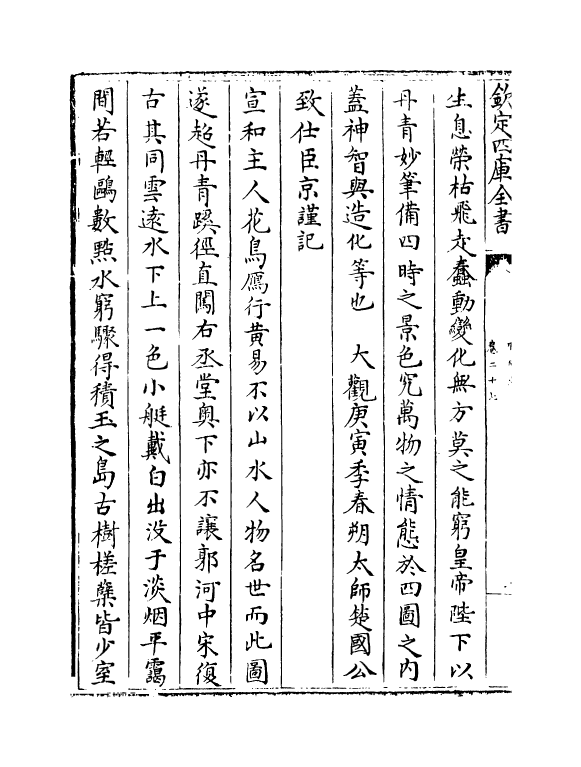 欽定四庫全書
卷二十七
生息榮枯飛走蠢動變化無方莫之能窮皇帝陛下以
丹青妙筆備四時之景色究萬物之情態於四圖之内
蓋神智與造化等也　大觀庚寅季春朔太師楚國公
致仕臣京謹記
宣和主人花鳥鴈行黄易不以山水人物名世而此圖
遂超丹青蹊徑直闖右丞堂奥下亦不讓郭河中宋復
古其同雲逺水下上一色小艇戴白出没于淡烟平靄
間若輕鷗數㸃水窮驟得積玉之島古樹槎蘖皆少室